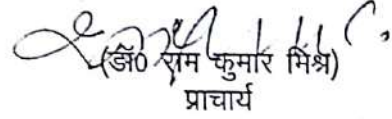 (डॉ0 राम कुमार मिश्र)
प्राचार्य